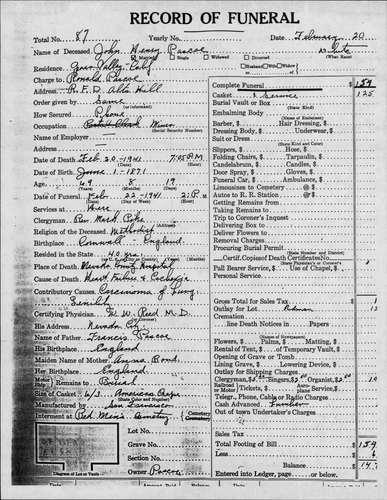 RECORD OF FUNERAL
Total No. 87 Yearly No. Date February 20
Name of Deceased John Henry Pascoe White
Married Single Widowed Divorced (What Race)
Residence Grass Valley, Calif
Husband Wife Widow
Charge to Ronald Pascoe
Address R.F.D. Alta Hill
Order given by Same
How Secured Phone
Occupation Miner
(Social Security Number)
Name of Employer
Address
Date of Death Feb. 20 - 1941 7:05 A M
Date of Birth June 1 - 1871
Age 69 8 19
Date of Funeral Feb. 22 - 1941 2 P. M.
Services at Here
Clergyman Rev. Mark
Religion of the Deceased Methodist
Birthplace Cornwall - England
Resided in the State 40 yrs
Place of Death Nevada County Hospital
Cause of Death Heart Failure &
Contributory Causes Carcinoma of Lung
Senility
Certifying Physician Reed M.D.
His Address Nevada City
Name of Father Francis Pascoe
His Birthplace England
Maiden Name of Mother Anna Bond
Her Birthplace England
Remains to Burial
Size of Casket 6/3 American
San Francisco
Interment at Red Men's Cemetery
Lot No.
Grave No.
Section No.
Owner Pascoe
Diagram of Lot or Vault
Complete Funeral $ 154
Casket & Service 125
Burial Vault or Box
(State Kind)
Embalming Body
(State Kind)
Barber, $ Hair Dressing, $
Dressing Body, $ Underwear, $
Suit or Dress
(State Kind and Color)
Slippers, $ Hose, $
Folding Chairs, $ Tarpaulin, $
Candelabrum, $ Candles, $
Door Spray, $ Gloves, $
Funeral Car, $ Ambulance, $
Limousines to Cemetery @ $
Autos to R. R. Station @ $
Getting Remains from
Taking Remains to
Trip to Coroner's Inquest
Delivering Box to
Deliver Flowers to
Removal Charges
Procuring Burial Permit
(State Number and District)
Cert. Copies of Death Certificates No.
Pall Bearer Service, $ Use of Chapel, $
Personal Service
Gross Total for Sales Tax
Outlay for Lot
Cremation
line Death Notices in Papers
Flowers, $ Palms, $ Matting, $
Rental of Tent, $ of Temporary Vault, $
Opening of Grave or Tomb
Lining Grave, $ Lowering Device, $
Outlay for Shipping Charges
Clergyman, $ Singers, $ Organist, $
Tickets, $ Service, $
Telegr., Phone, Cable or Radio Charges
Cash Advanced
Out of town Undertaker's Charges
Sales Tax
Total Footing of Bill $ 154
Less 6
Balance
Entered into Ledger, page or below.